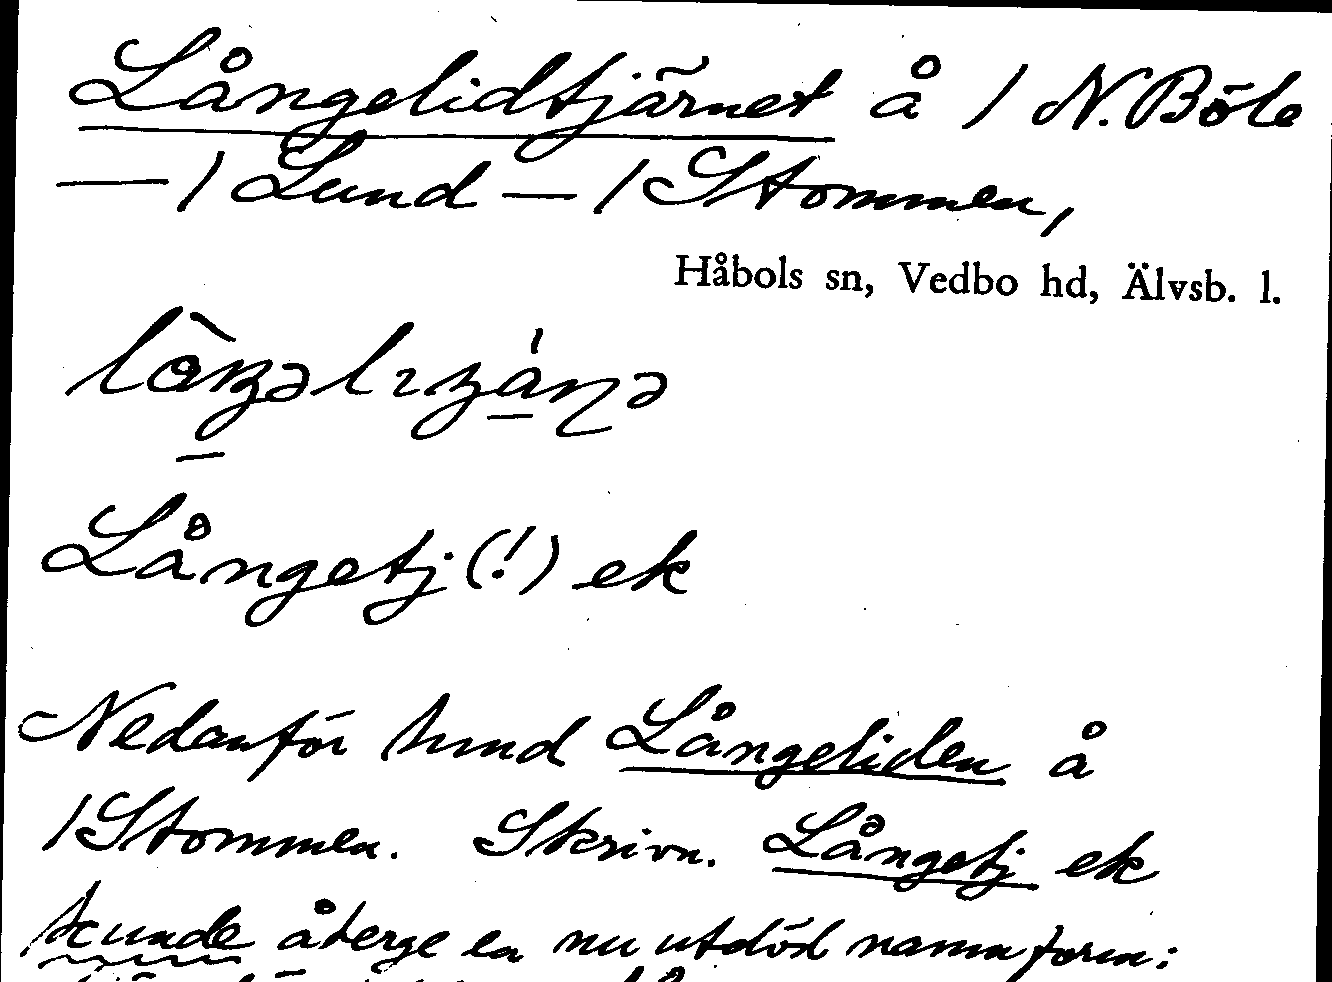 Långelidtjärnet å / N. Böle
— / Lund — / Stommen,
Håbols sn, Vedbo hd, Älvsb. l.
Långetj (!) ek
Nedanför hmd Långeliden å
/ Stommen. Skrivn. Långetj ek
kunde återge en nu utdöd namnform: